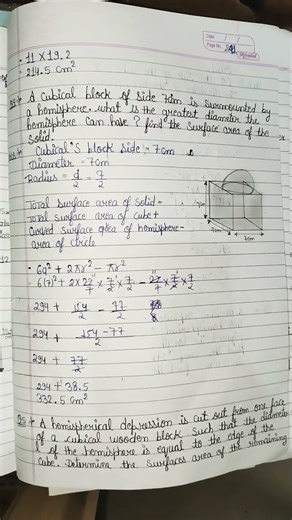 Date
Page No. 201
= 11 × 19.2
= 214.5 cm²
Q4→ A Cubical block of side 7cm is surmounted by
a hemisphere. what is the greatest diameter the
hemisphere can have? find the surface area of the
Solid.
Cubical's block side = 7cm
Diameter = 7cm
Radius = d/2 = 7/2
Total surface area of solid =
Total surface area of cube +
Curved surface area of hemisphere -
area of circle
= 6a² + 2πr² - πr²
= 6(7)² + 2 × 22/7 × 7/2 × 7/2 - 22/7 × 7/2 × 7/2
294 + 154/2 - 77/2
294 + 154-77/2
294 + 77/2
294 + 38.5
332.5 cm²
Q5→ A hemispherical depression is cut out from one face
of a cubical wooden block such that the diameter
l of the hemisphere is equal to the edge of the
cube. Determine the surfaces area of the remaining